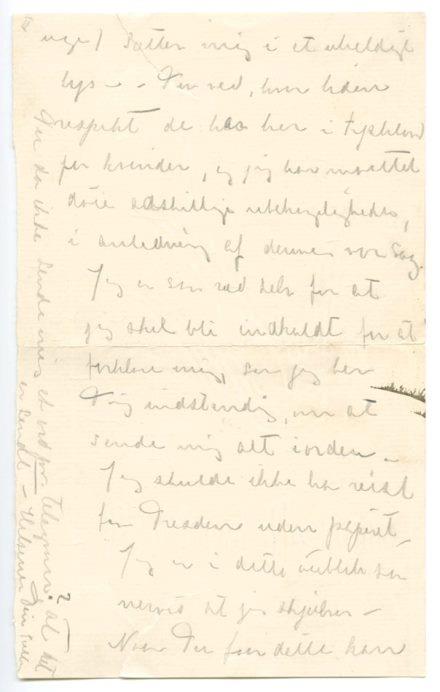 uge) sætter mig i et uheldigt
lys – – Du ved, hvor liden
respekt de har her i Tyskland
for kvinder, og jeg har maattet
døie adskillige ubehageligheder,
i anledning af denne vor sag.
Jeg er saa ræd selv for at
jeg skal bli indkaldt for at
forklare mig, saa jeg ber
Dig indstændig, om at
sende mig alt iorden –
Jeg skulde ikke ha reist
fra Dresden uden papiret –
Jeg er i dette øieblik saa
nervøs at jeg skjælver –
Naar Du faar dette kan
Du da ikke sende mig et ord pr. telegraf? at det
er sendt – Hilsener Din